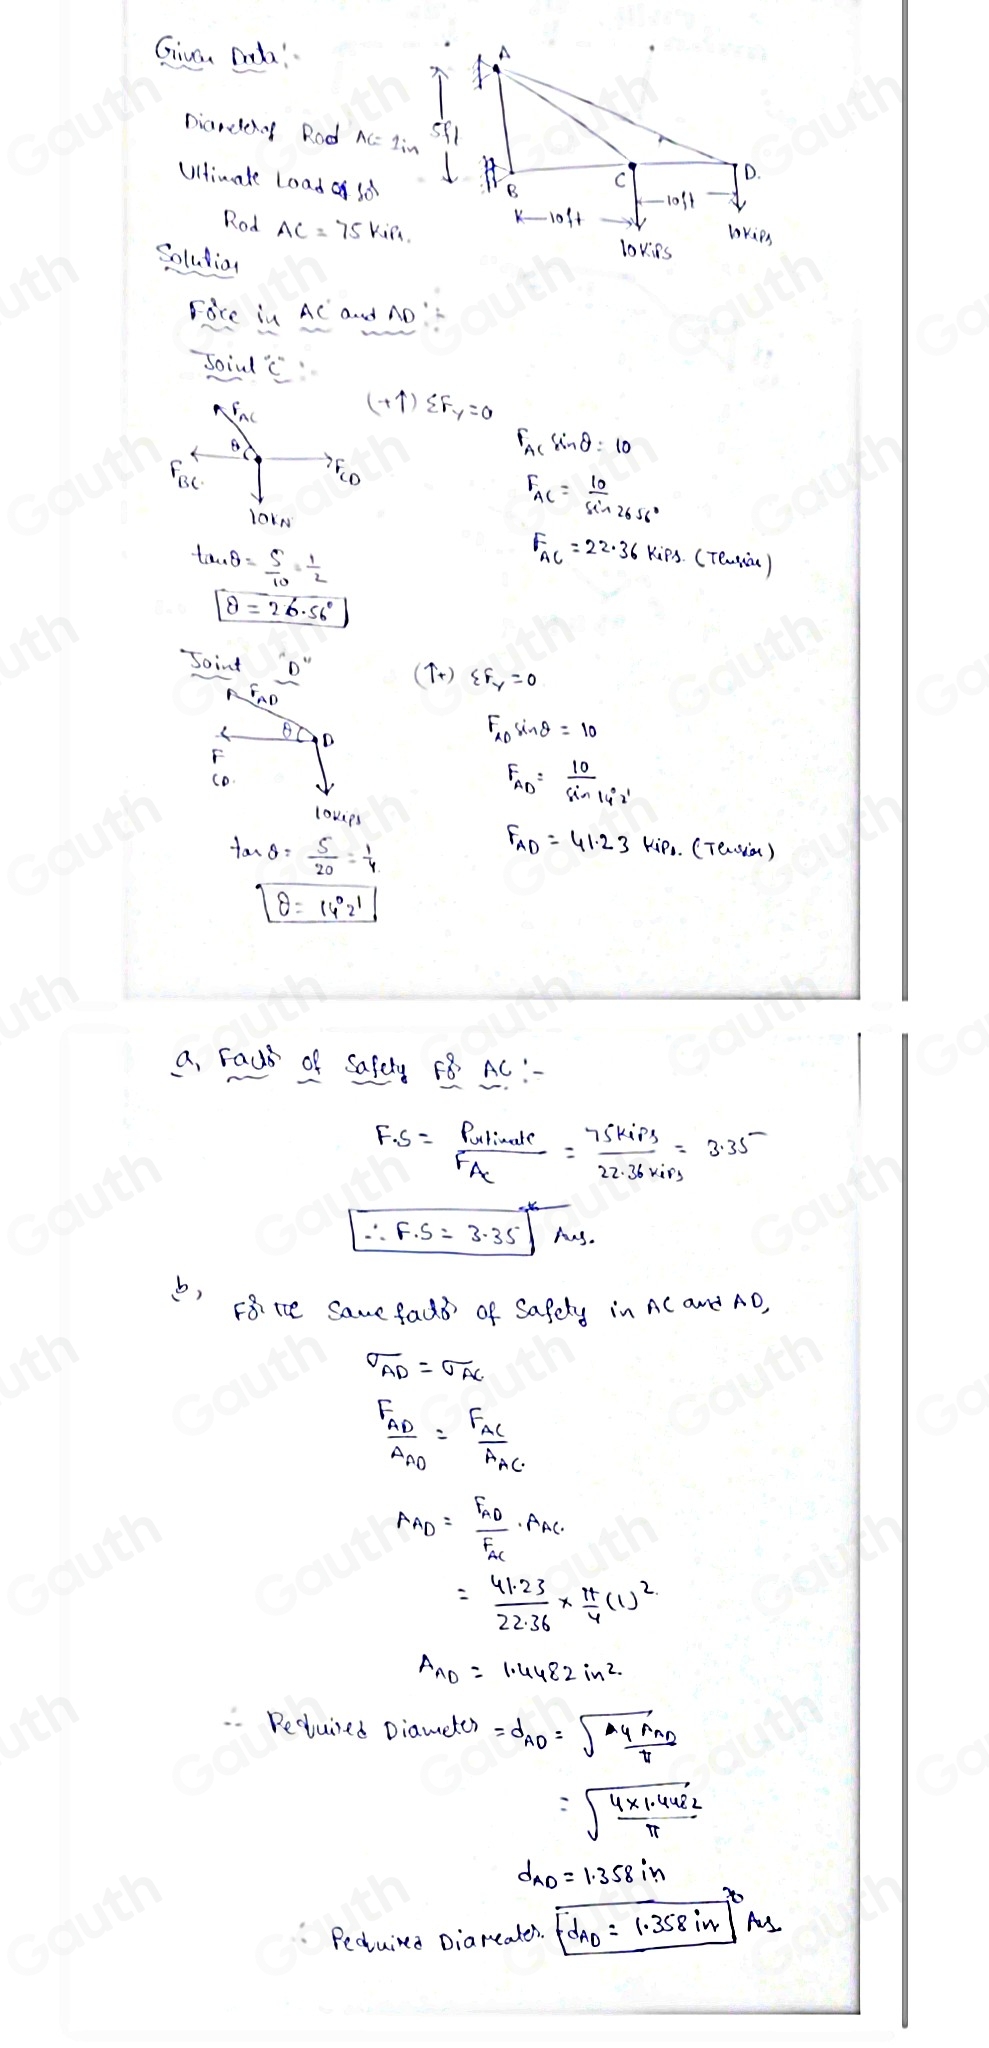 Given Data:-
Diameter of Rod AC = 1in
Ultimate Load for
Rod AC = 75 Kips.
A
5ft
B
C
D.
10ft
10ft
10Kips
10Kips
Solution
Force in AC and AD :-
Joint "C" :-
F_AC
θ
F_BC.
F_CD
10KN
(+↑) ΣF_y = 0
F_AC sinθ = 10
F_AC = 10 / sin 26.56°
F_AC = 22.36 Kips. (Tension)
tanθ = 5/10 = 1/2
θ = 26.56°
Joint "D"
F_AD
θ
D
F_CD.
10Kips
(↑+) ΣF_y = 0
F_AD sinθ = 10
F_AD = 10 / sin 14°2'
F_AD = 41.23 Kips. (Tension)
tanθ = 5/20 = 1/4.
θ = 14°2'
a, Factor of Safety For AC :-
F.S = Pultimate / F_AC = 75Kips / 22.36 Kips = 3.35
∴ F.S = 3.35 Ans.
b,
For the Same factor of Safety in AC and AD,
σ_AD = σ_AC.
F_AD / A_AD = F_AC / A_AC.
A_AD = F_AD / F_AC . A_AC.
= 41.23 / 22.36 × π/4 (1)².
A_AD = 1.4482 in².
∴ Required Diameter = d_AD = √(4 A_AD / π)
= √(4×1.4482 / π)
d_AD = 1.358 in
∴ Required Diameater. d_AD = 1.358 in Ans
Gauth